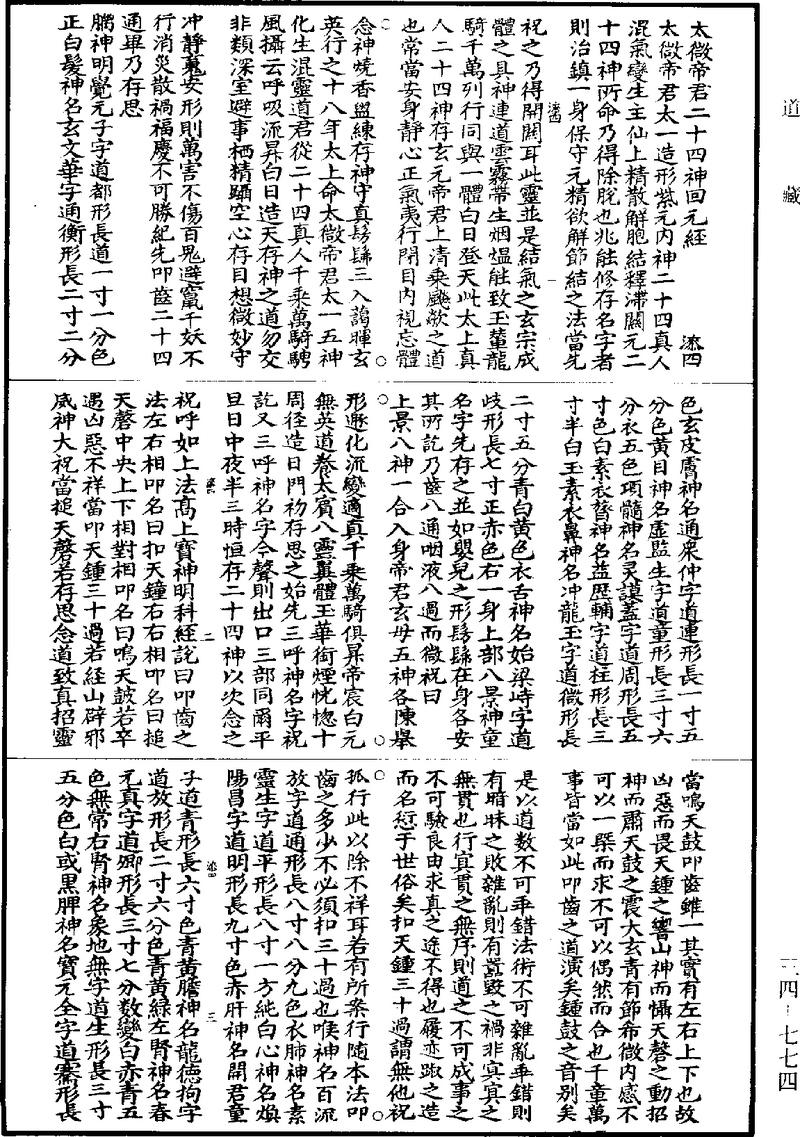 道藏
三四－七七四
太微帝君二十四神回元經
添四
太微帝君太一造形紫元內神二十四真人
混氣變生主仙上精散解胞結釋滯闕元二
十四神所命乃得除脫也兆能修存名字者
則治鎮一身保守元精欲解節結之法當先
祝之乃得開關耳此靈並是結氣之玄宗成
體之具神連道雲霧帶生烟熅能致玉輦龍
騎千萬列行同與一體白日登天此太上真
人二十四神存玄元帝君上清乘飈歘之道
也常當安身靜心正氣夷行閉目內視忘體
念神燒香盥練存神守真髣髴三入藹暉玄
英行之十八年太上命太微帝君太一五神
化生混靈道君從二十四真人千乘萬騎騁
風攝云呼吸流昇白日造天存神之道勿交
非類深室避事栖精躡空心存目想微妙守
冲靜䰟安形則萬害不傷百鬼避竄千妖不
行消災散禍福慶不可勝紀先叩齒二十四
通畢乃存思
腦神明覺元子字道都形長一寸一分色
正白髮神名玄文華字通衡形長二寸二分
色玄皮膚神名通衆仲字道連形長一寸五
分色黃目神名虛監生字道童形長三寸六
分衣五色項髓神名灵謨蓋字道周形長五
寸色白素衣膂神名益歷輔字道柱形長三
寸半白玉素衣鼻神名冲龍玉字道微形長
二寸五分青白黃色衣舌神名始梁峙字道
歧形長七寸正赤色右一身上部八景神童
名字先存之並如嬰兒之形髣髴在身各安
其所訖乃齒八通咽液八過而微祝曰
上景八神一合入身帝君玄母五神各陳舉
形遯化流變適真千乘萬騎俱昇帝宸白元
無英道養太賓八靈翼體玉華衛煙恍惚十
周徑造日門初存思之始先三呼神名字祝
訖又三呼神名字令聲則出口三部同爾平
旦日中夜半三時恒存二十四神以次念之
祝呼如上法髙上寶神明科經訖曰叩齒之
法左右相叩名曰扣天鐘右右相叩名曰搥
天磬中央上下相對相叩名曰鳴天鼓若卒
遇凶惡不祥當叩天鐘三十過若經山辟邪
威神大祝當搥天磬若存思念道致真招靈
當鳴天鼓叩齒雖一其實有左右上下也故
凶惡而畏天鐘之響山神而懾天磬之動招
神而肅天鼓之震大玄青有節希微內感不
可以一槩而求不可以偶然而合也千童萬
事皆當如此叩齒之道演矣鍾鼓之音別矣
是以道数不可乖錯法術不可雜亂乖錯則
有暗昧之敗雜亂則有蠹毀之禍非㝠㝠之
無貫也行㝠貫之無序則道之不可成事之
不可驗良由求真之途不得也履亦踙之造
而名愆于世俗矣扣天鐘三十過謂無他祝
孤行此以除不祥耳若有所案行隨本法叩
齒之多少不必須扣三十過也喉神名百流
放字道通形長八寸八分九色衣肺神名素
靈生字道平形長八寸一方純白心神名煥
陽昌字道明形長九寸色赤肝神名開君童
子道青形長六寸色青黃膽神名龍德拘字
道放形長二寸六分色青黃緑左腎神名春
元真字道卿形長三寸七分数變白赤青五
色無常右腎神名象地無字道生形長三寸
五分色白或黑脾神名寶元全字道騫形長